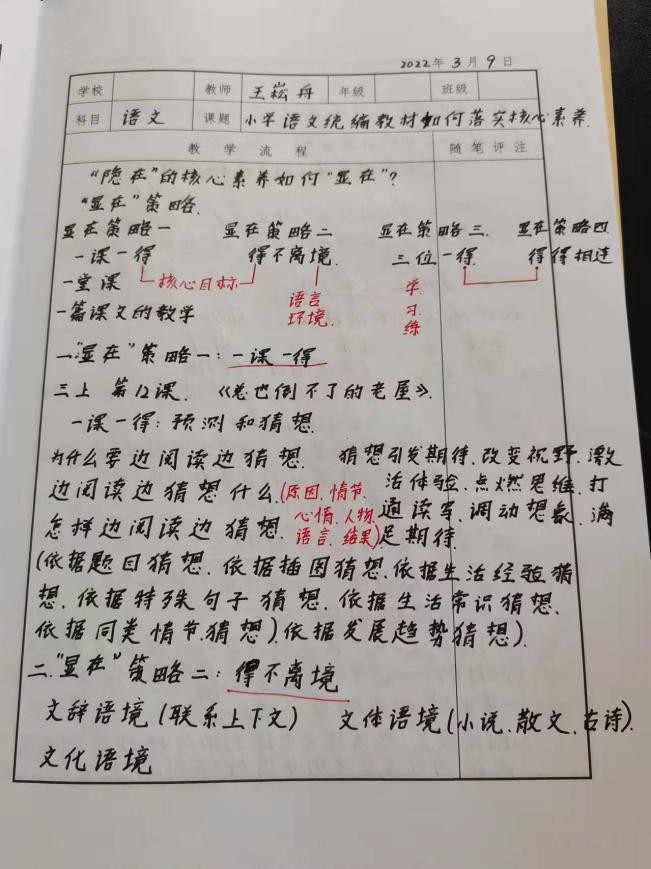 2022年 3月 9日
学校 教师 王崧舟 年级 班级
科目 语文 课题 小学语文统编教材如何落实核心素养.
教 学 流 程 随 笔 评 注
“隐在”的核心素养如何“显在”?
“显在”策略.
显在策略一 显在策略二 显在策略三. 显在策略四
一课一得 得不离境. 三位一得. 得得相连
一堂课 核心目标
一篇课文的教学 语言环境. 学.习.练
一.“显在”策略一:一课一得
三上 第12课. 《总也倒不了的老屋》.
一课一得:预测和猜想.
为什么要边阅读边猜想. 猜想引发期待.改变视野.激
边阅读边猜想什么.(原因.情节. 活体验.点燃思维.打
心情.人物. 通读写.调动想象.满
怎样边阅读边猜想. 语言.结果)足期待.
(依据题目猜想.依据插图猜想.依据生活经验猜
想.依据特殊句子猜想.依据生活常识猜想.
依据同类情节.猜想).依据发展趋势猜想).
二.“显在”策略二:得不离境
文辞语境(联系上下文) 文体语境(小说.散文.古诗).
文化语境